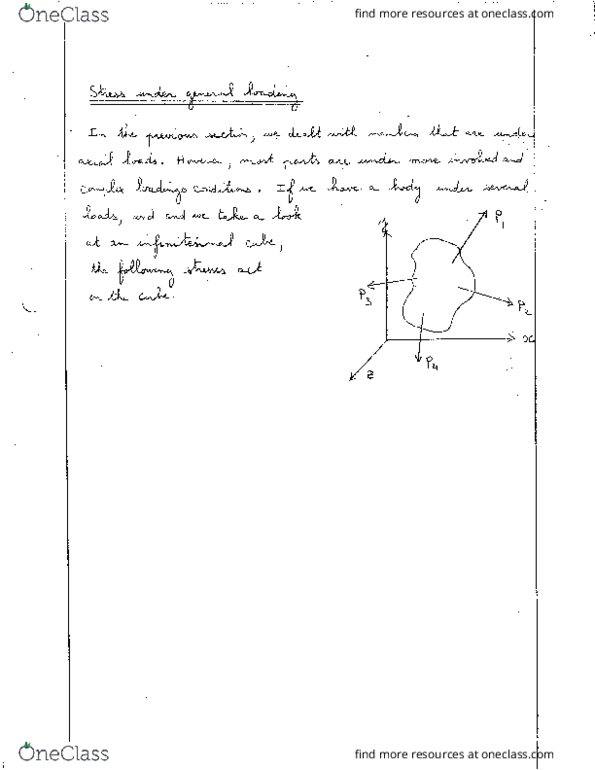 OneClass
find more resources at oneclass.com
Stress under general loading
In the previous section, we dealt with members that are under
axial loads. However, most parts are under more involved and
complex loadings conditions. If we have a body under several
loads, and and we take a look
at an infinitesimal cube,
the following stresses act
on the cube.
y
P1
P3
P2
x
P4
z
OneClass
find more resources at oneclass.com